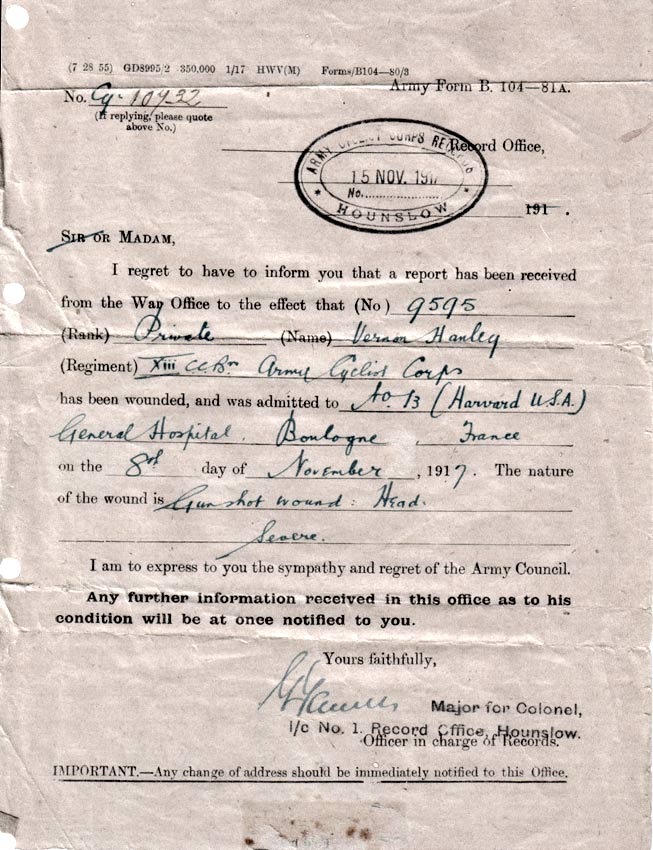 (7 28 55) GD8995/2 350,000 1/17 HWV(M) Forms/B104—80/3
Army Form B. 104—81A.
No. Cy. 10932
(If replying, please quote
above No.)
Record Office,
ARMY CYCLIST CORPS RECORDS
15 NOV. 191
No.
HOUNSLOW
191 .
SIR OR MADAM,
I regret to have to inform you that a report has been received
from the War Office to the effect that (No ) 9595
(Rank) Private (Name) Vernon Hanley
(Regiment) Xiii CCBn Army Cyclist Corps
has been wounded, and was admitted to No. 13 (Harvard U.S.A.)
General Hospital. Boulogne, France
on the 8th day of November, 1917. The nature
of the wound is Gunshot wound: Head.
Severe.
I am to express to you the sympathy and regret of the Army Council.
Any further information received in this office as to his
condition will be at once notified to you.
Yours faithfully,
Major for Colonel,
i/c No. 1. Record Office, Hounslow.
Officer in charge of Records.
IMPORTANT.—Any change of address should be immediately notified to this Office.